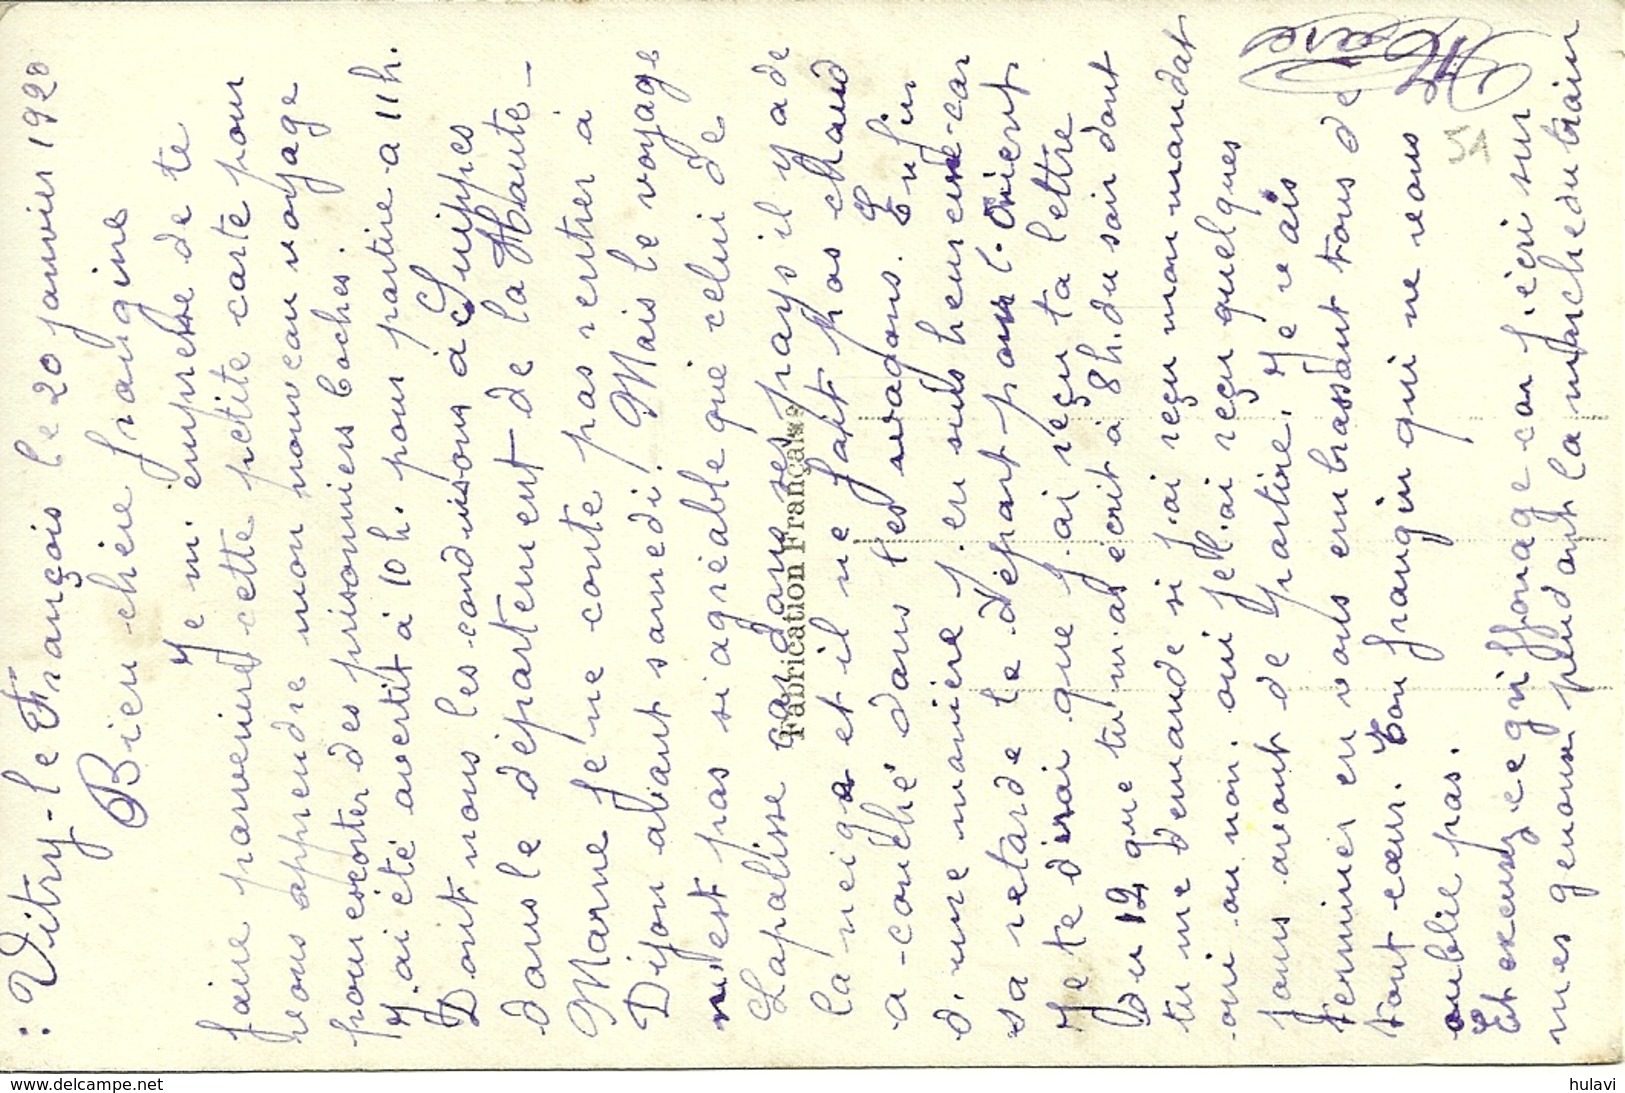 : Vitry-le François le 20 janvier 1920
Bien chère frangine
Je m'empresse de te
faire parvenird cette petite carte pour
vous apprendre mon nouveau voyage
pour escorter des prisonniers boches.
J'ai été avertit à 10 h. pour partire a 11 h.
Dont nous les conduisons à Suippes
dans le département de la Haute-
Marne Je ne conte pas rentrer à
Dijon avant samedi. Mais le voyage
n'est pas si agréable que celui de
Lapalisse car dans ses pays il y a de
la neige et il ne fait pas chaud
a couché dans les wagons. Enfin
d'une manière J'en suis heureuse car
sa retarde le départ pour l'Orient
Je te dirai que J'ai reçu ta lettre
du 12 que tu m'as écrit à 8 h. du soir dont
tu me demande si J'ai reçu mon mandat
oui ou non. oui Je l'ai reçu quelques
jours avant de partire. Je vais
terminer en vous embrassant tous de
tout cœur. Ton frangin qui ne vous
oublie pas.
Et excusez ce griffonage car J'écri sur
mes genoux pendant la marche du train
51
Fabrication Française
www.delcampe.net
hulavi